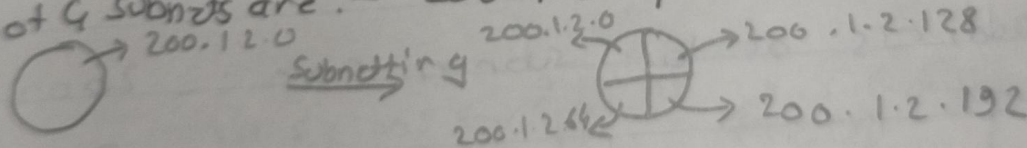 of 4 subnets are.
200.1 2.0
Subnetting
200.1.2.0
200.1.2.128
200.1.2.64
200.1.2.192